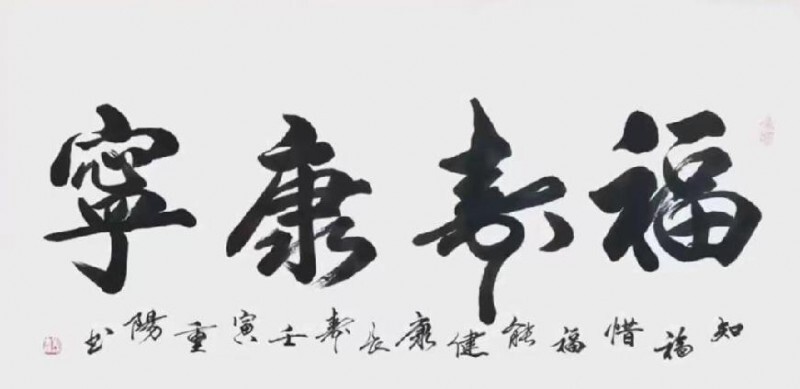 福壽康寧
知福惜福能健康長壽壬寅重陽書